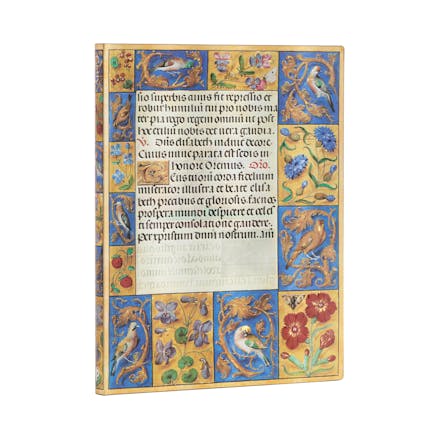 sio superbis fit repressio et
robur humiliū pro nobis ma
ter pia regem omniū ut post
hoc exiliū nobis det vera gaudia.
V. Dn̄s elisabeth induit decore
Cuius nunc parata est sedis in
honore Oremus. Oro.
Tuorū corda fidelium
miserator illustra et beate elisa
beth precibus et gloriosis fac nos
prospera mundi despicere et celes
ti semper consolatione gaudere.
Per xpristum dnm nostrum. am